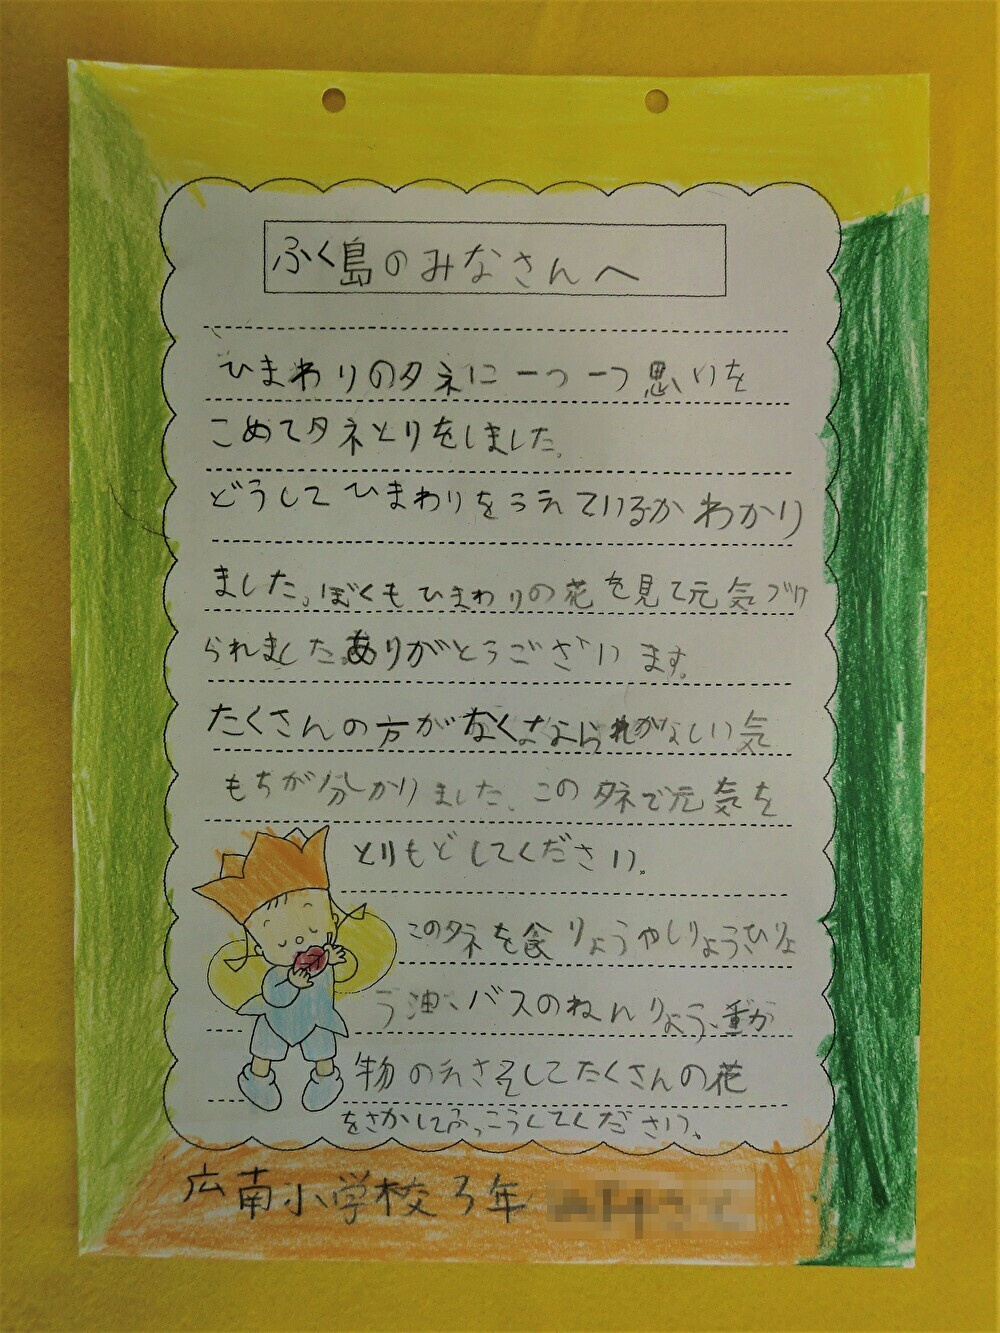 ふく島のみなさんへ
ひまわりのタネに一つ一つ思いを
こめてタネとりをしました。
どうしてひまわりをうえているかわかり
ました。ぼくもひまわりの花を見て元気づけ
られました。ありがとうございます。
たくさんの方がなくなられかなしい気
もちが分かりました。このタネで元気を
とりもどしてください。
このタネを食りょうやしりょうひりょ
う油、バスのねんりょう、動か
物のえさそしてたくさんの花
をさかしてふっこうしてください。
広南小学校3年